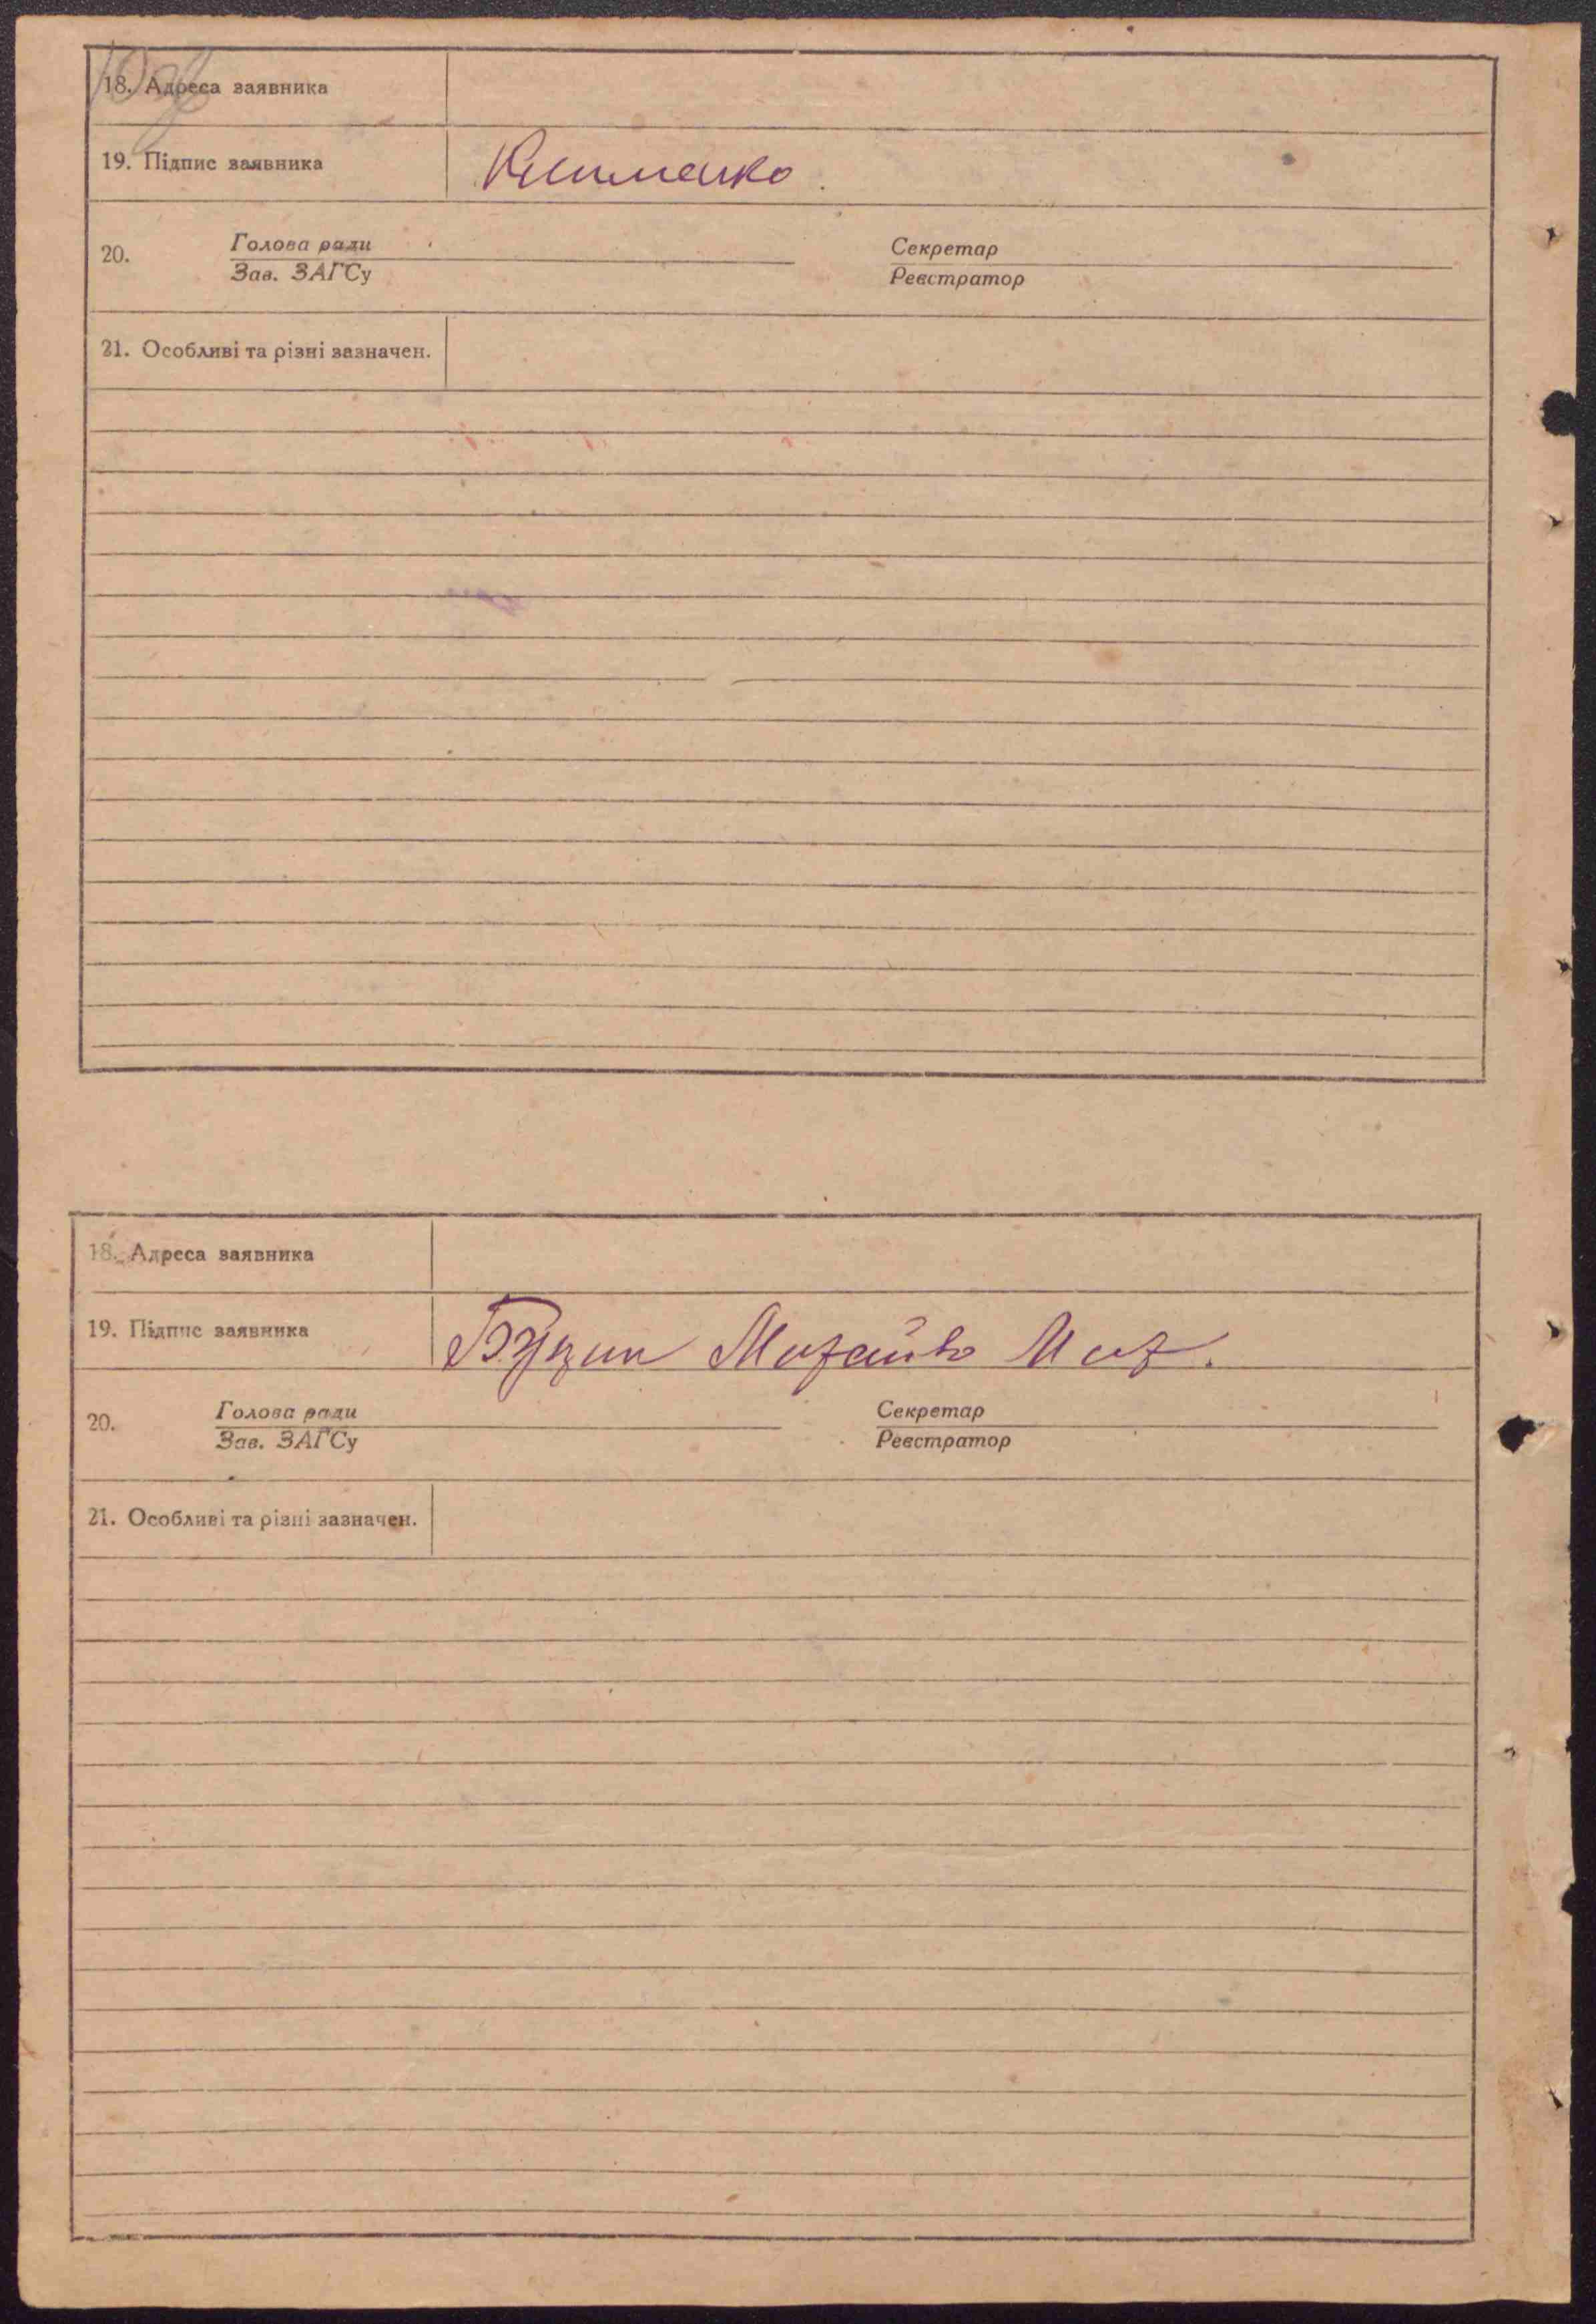 18. Адреса заявника
19. Підпис заявника Клименко
20. Голова ради Секретар
Зав. ЗАГСу Реєстратор
21. Особливі та різні зазначен.
18. Адреса заявника
19. Підпис заявника Буцик Михайло Мих.
20. Голова ради Секретар
Зав. ЗАГСу Реєстратор
21. Особливі та різні зазначен.